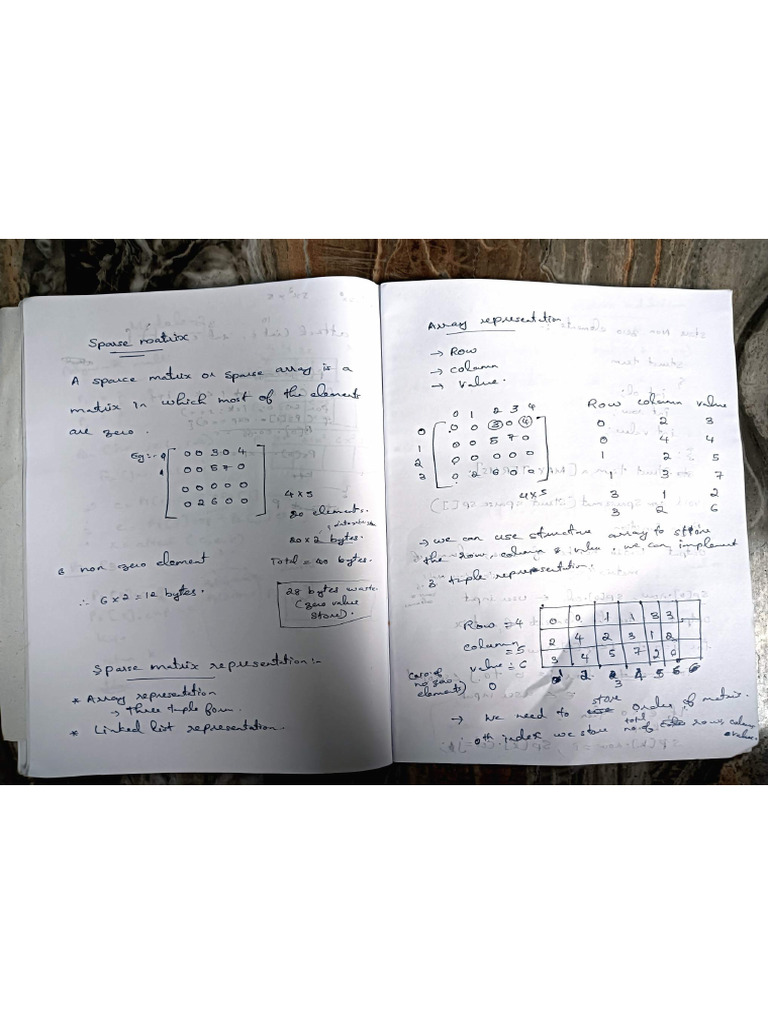 Sparse matrix
A sparce matrix or sparse array is a
matrix in which most of the elements
are zero.
Eg:-
0 0 3 0 4
0 0 5 7 0
0 0 0 0 0
0 2 6 0 0
4 x 5
20 elements.
20 x 2 bytes.
6 non zero element
Total = 40 bytes.
∴ 6 x 2 = 12 bytes.
28 bytes waste
(zero value
store).
Sparse matrix representation:-
* Array representation
→ Three tuple form.
* Linked list representation.
Array representation
→ Row
→ column
→ value.
0 1 2 3 4
0 0 0 3 0 4
1 0 0 5 7 0
2 0 0 0 0 0
3 0 2 6 0 0
4 x 5
Row column value
0 2 3
0 4 4
1 2 5
1 3 7
3 1 2
3 2 6
→ we can use structure array to store
the row, column & value. we can implement
3 tuple representation.
Row = 4
column = 5
value = 6
(no. of
no zero
elements)
0 0 1 1 3 3
2 4 2 3 1 2
3 4 5 7 2 0
0 1 2 3 4 5 6
→ we need to store order of matrix.
0th index we store total no of rows, column
value.